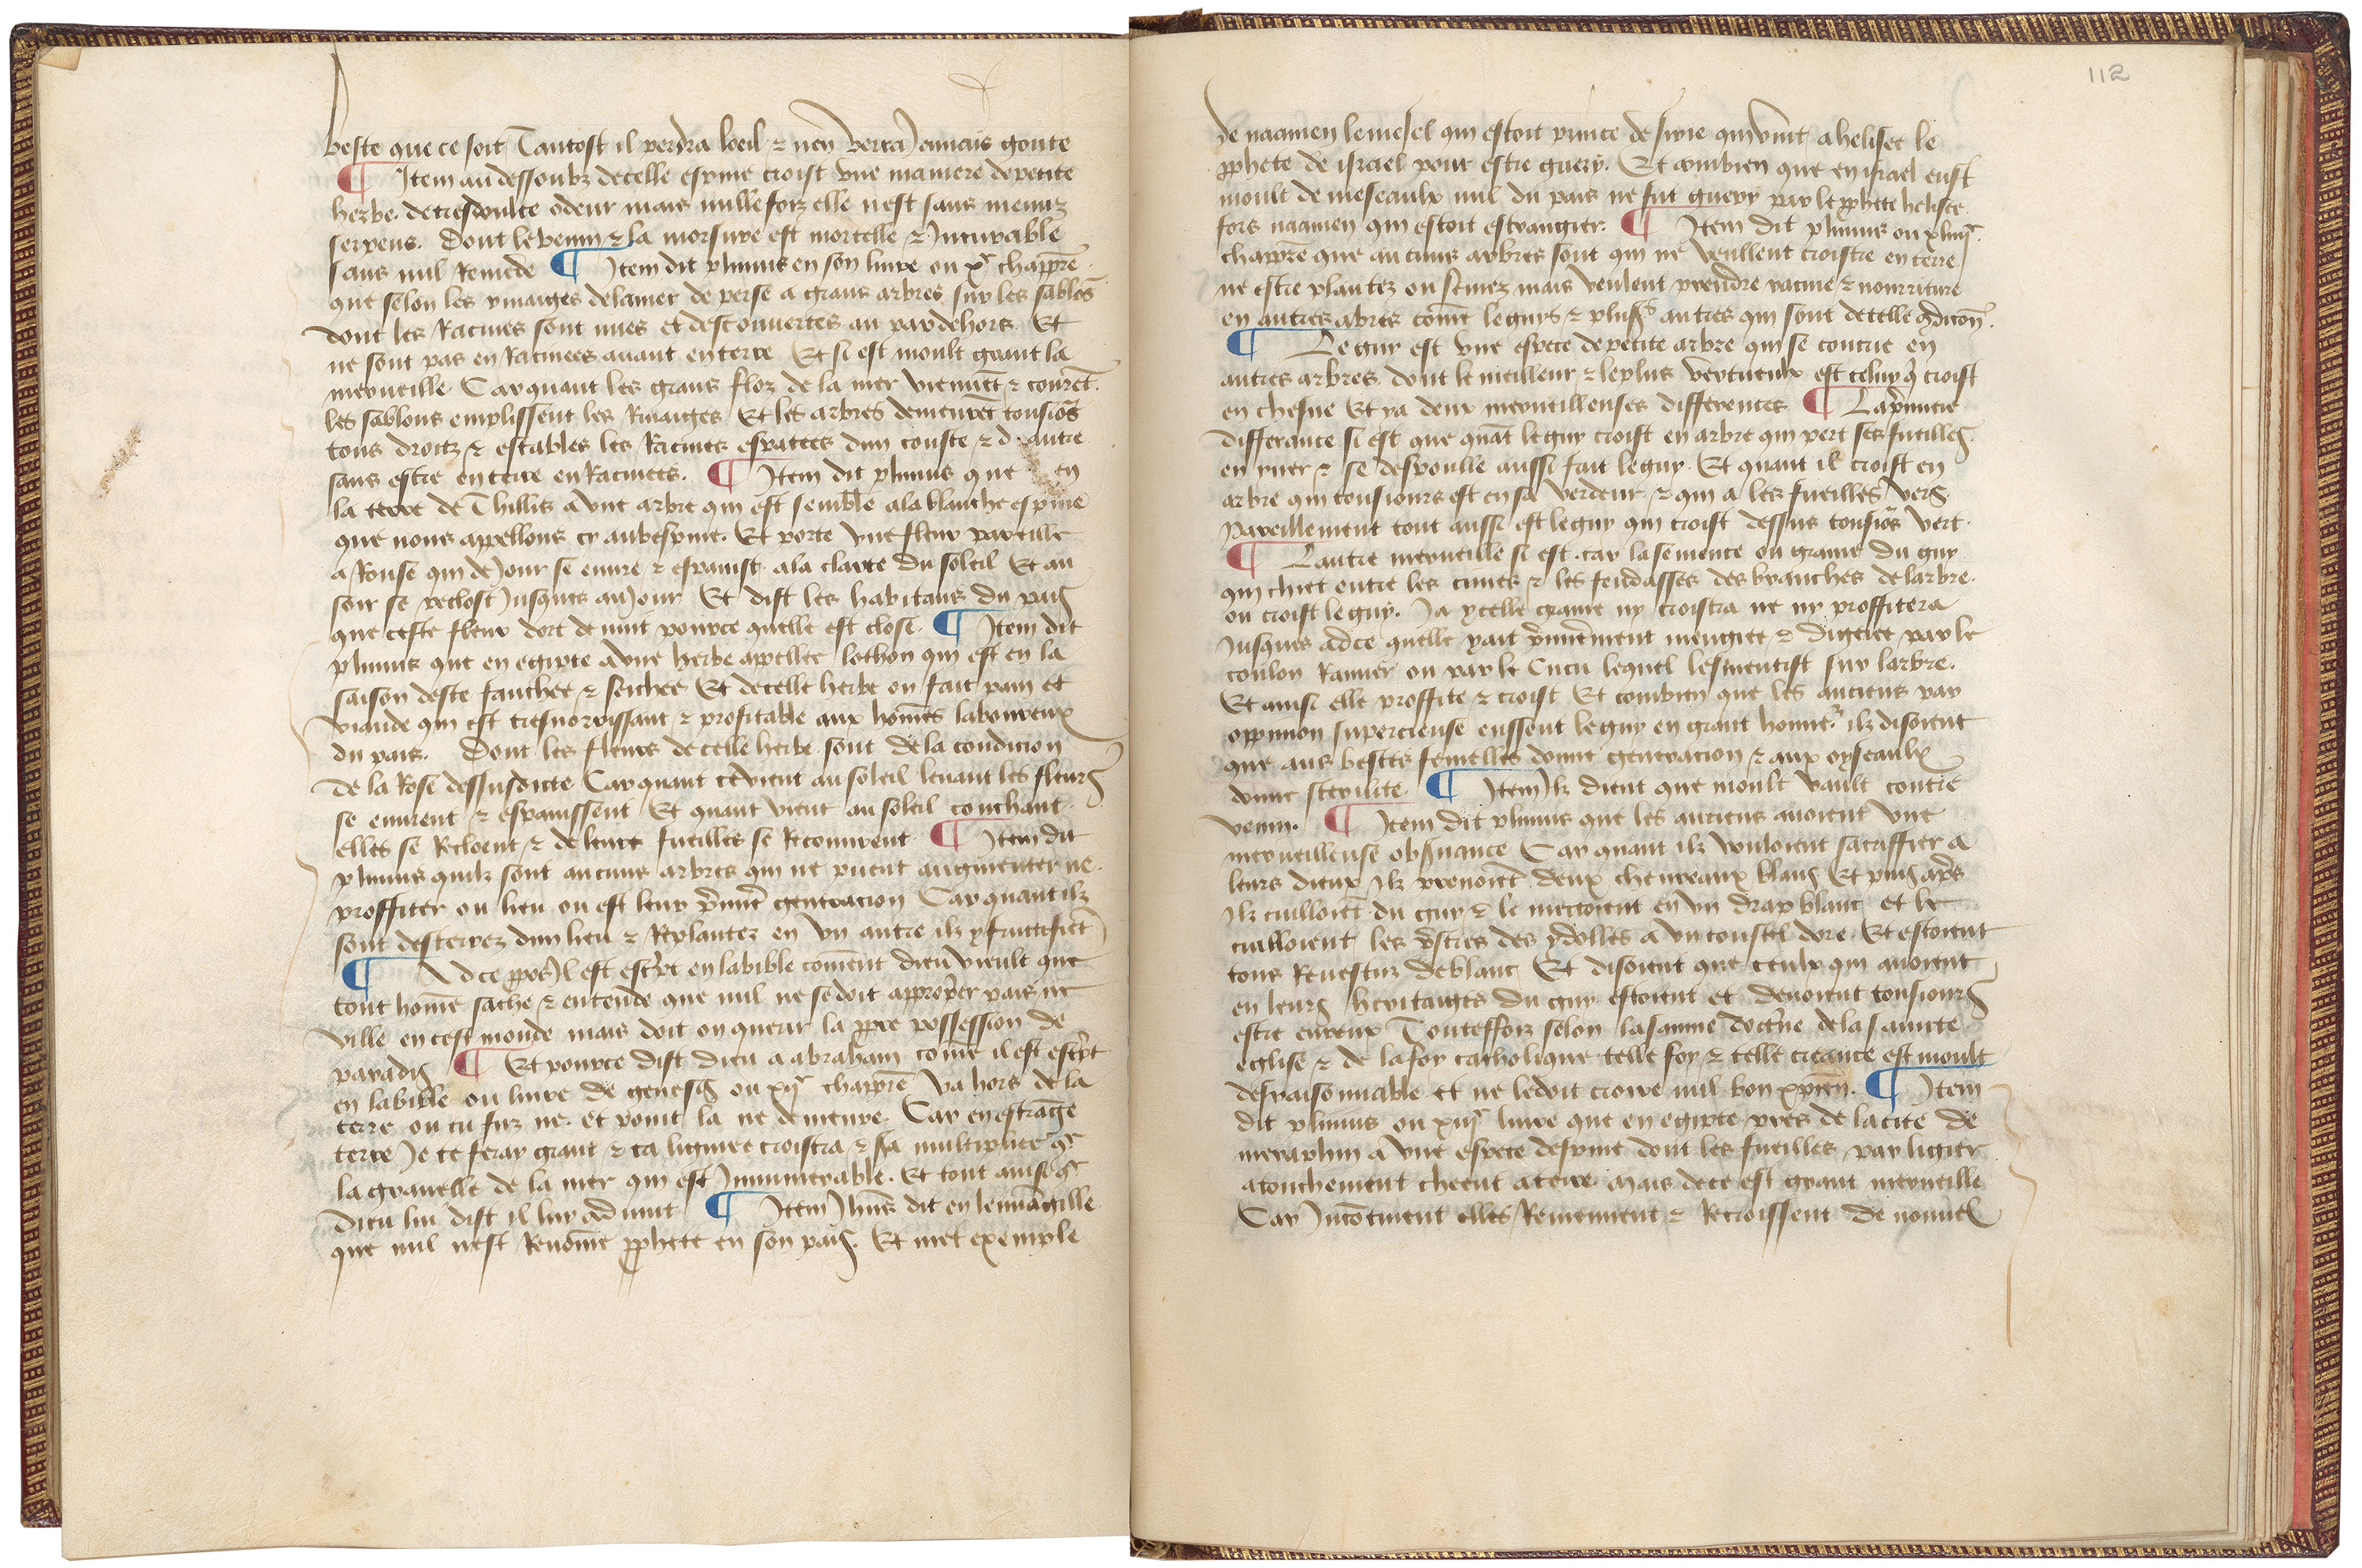 beste que ce soit Tantost il perdra loeil ⁊ nen verra Jamais goute
¶ Item au dessoubz de celle espine croist vne maniere de petite
herbe. de tresdoulce odeur mais nulleforz elle nest sans menuz
serpens. Dont le venin ⁊ la morsure est mortelle ⁊ Incurable
sans nul Remede ¶ Item dit plinius en son liure ou xe chappre
que selon les riuaiges de la mer de perse a grans arbres sur les sablōs
dont les Racines sont nues et descouuertes au par dehors. Et
ne sont pas en Racinees auant en terre Et si est moult grant la
merueille. Car quant les grans floz de la mer viennēt ⁊ courēt.
les sablons emplissent les Riuaiges Et les arbres demeurēt tousiōs
tous droitz ⁊ estables les Racines esparces dun couste ⁊ d autre
sans estre en terre en Racinees. ¶ Item dit plinius que en
la terre de Thillis a vne arbre qui est semblē a la blanche espine
que nous appellons cy aubespine. Et porte vne fleur pareille
a Rouse qui de Jour se euure ⁊ espanist a la clarte du soleil Et au
soir se reclost Jusques au Jour Et dist les habitans du pais
que ceste fleur dort de nuit pource quelle est close. ¶ Item dit
plinius que en egipte a vne herbe appellee lothon qui est en la
saison deste fauchee ⁊ seichee Et de celle herbe on fait pain et
viande qui est tresnorrissant ⁊ profitable aux homēs laboureux
du pais. Dont les fleurs de celle herbe sont de la condicion
de la Rose dessusdicte Car quant ce vient au soleil leuant les fleurs
se euurent ⁊ espanissent Et quant vient au soleil couchant.
elles se Recloent ⁊ de leurs fueilles se Recouurent ¶ Item dit
plinius quilz sont aucuns arbres qui ne puent augmenter ne.
proffiter ou lieu ou est leur p̄mier generacion Car quant ilz
sont desterrez dun lieu ⁊ Replantez en vn autre ilz y fructefiēt
¶ Ad ce ppos Jl est escrīpt en la bible comēnt dieu vieult que
tout homē sache ⁊ entende que nul ne se doit appropr̄er pais ne
ville en cest monde mais doit on querir la ppre possession de
paradis ¶ Et pource dist dieu a abraham come il est escrīpt
en la bible ou liure de genesis ou xije chappre va hors de la
terre ou tu fuz ne. et point la ne demeure. Car en estrāge
terre Je te feray grant ⁊ ta lignee croistra ⁊ sa multiplicē qe
la grauelle de la mer qui est Innumerable. Et tout ainsi qe
dieu lui dist il luy aduint ¶ Item Jhus dit en leuuāgille
que nul nest Renomē pphete en son pais. Et met exemple
112
de naamen le mesel qui estoit prince de sirie qui vint a helisee le
pphete de israel pour estre guery. Et combien que en israel eust
moult de meseaulx nul du pais ne fut guery par le pphete helisee
fors naamen qui estoit estrangier. ¶ Item dit plinius ou xliije.
chappre que aucuns arbres sont qui ne veullent croistre en terre
ne estre plantez ou semez mais veulent prendre racine ⁊ nourriture
en autres abres comē le guys ⁊ plusrs autres qui sont de celle 9dicōn.
¶ Le guy est vne espece de petite arbre qui se concrie en
autres arbres. dont le meilleur ⁊ le plus vertueux est celuy q̄ croist
en chesne Et y a deux merueilleuses differences ¶ La p̄miere
differance si est que quāt le guy croist en arbre qui pert ses fueilles
en yuer ⁊ se despoulle aussi fait le guy. Et quant il croist en
arbre qui tousiours est en sa verdeur ⁊ qui a les fueilles vers
Pareillement tout aussi est le guy qui croist dessus tousiōs vert.
¶ Lautre merueille si est. car la semence ou graine du guy
qui chiet entre les cimes ⁊ les fendasses des branches de larbre.
ou croist le guy. Ja ycelle graine ny croistra ne ny proffitera
Jusques ad ce quelle yait p̄mieremēnt mengiee ⁊ digeree par le
coulon Ramier ou par le Cucu lequel lesmentist sur larbre.
Et ainsi elle proffite ⁊ croist Et combien que les anciens par
oppinion supercieuse eussent le guy en grant honnē. ilz disoient
que aus bestes femelles donne generacion ⁊ aux oyseaulx
donne sterilite. ¶ Item Jlz dient que moult vault contre
venin. ¶ Item dit plinius que les anciens auoient vne
merueilleuse obsuance Car quant ilz vouloient sacriffier a
leurs dieux Jlz prenoiēt deux cheureaux blans Et puis aprēs
Jlz cuilloiēt du guy ⁊ le mectoient en vn drap blanc et le
cuilloient les p̄stres des ydolles a vn coustel dore. Et estoient
tous Reuestuz de blanc Et disoient que ceulx qui auoient
en leurs heritaiges du guy estoient et deuoient tousiours
estre eureux Touteffoiz selon la saine doctrīne de la saincte
eglise ⁊ de la foy catholique telle foy ⁊ telle creance est moult
desraisonnable et ne le doit croire nul bon xpien. ¶ Item
dit plinius ou xiije liure que en egipte pres de la cite de
meraphin a vne espece despine dont les fueilles par ligier
atouchement cheent a terre. Mais de ce est grant merueille
Car Incontinent elles Reuiennent ⁊ Recroissent de nouuel